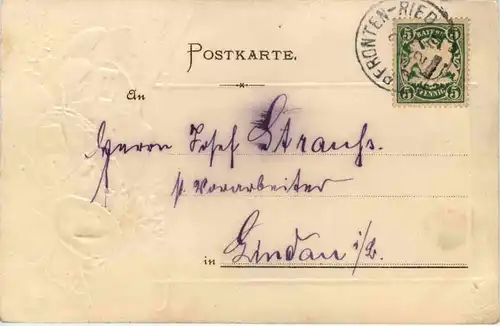 PFRONTEN-RIED
BAYERN
5 5
5 PFENNIG 5
POSTKARTE.
An
Herrn Josef Strauss.
Vorarbeiter
in Lindau i/B.